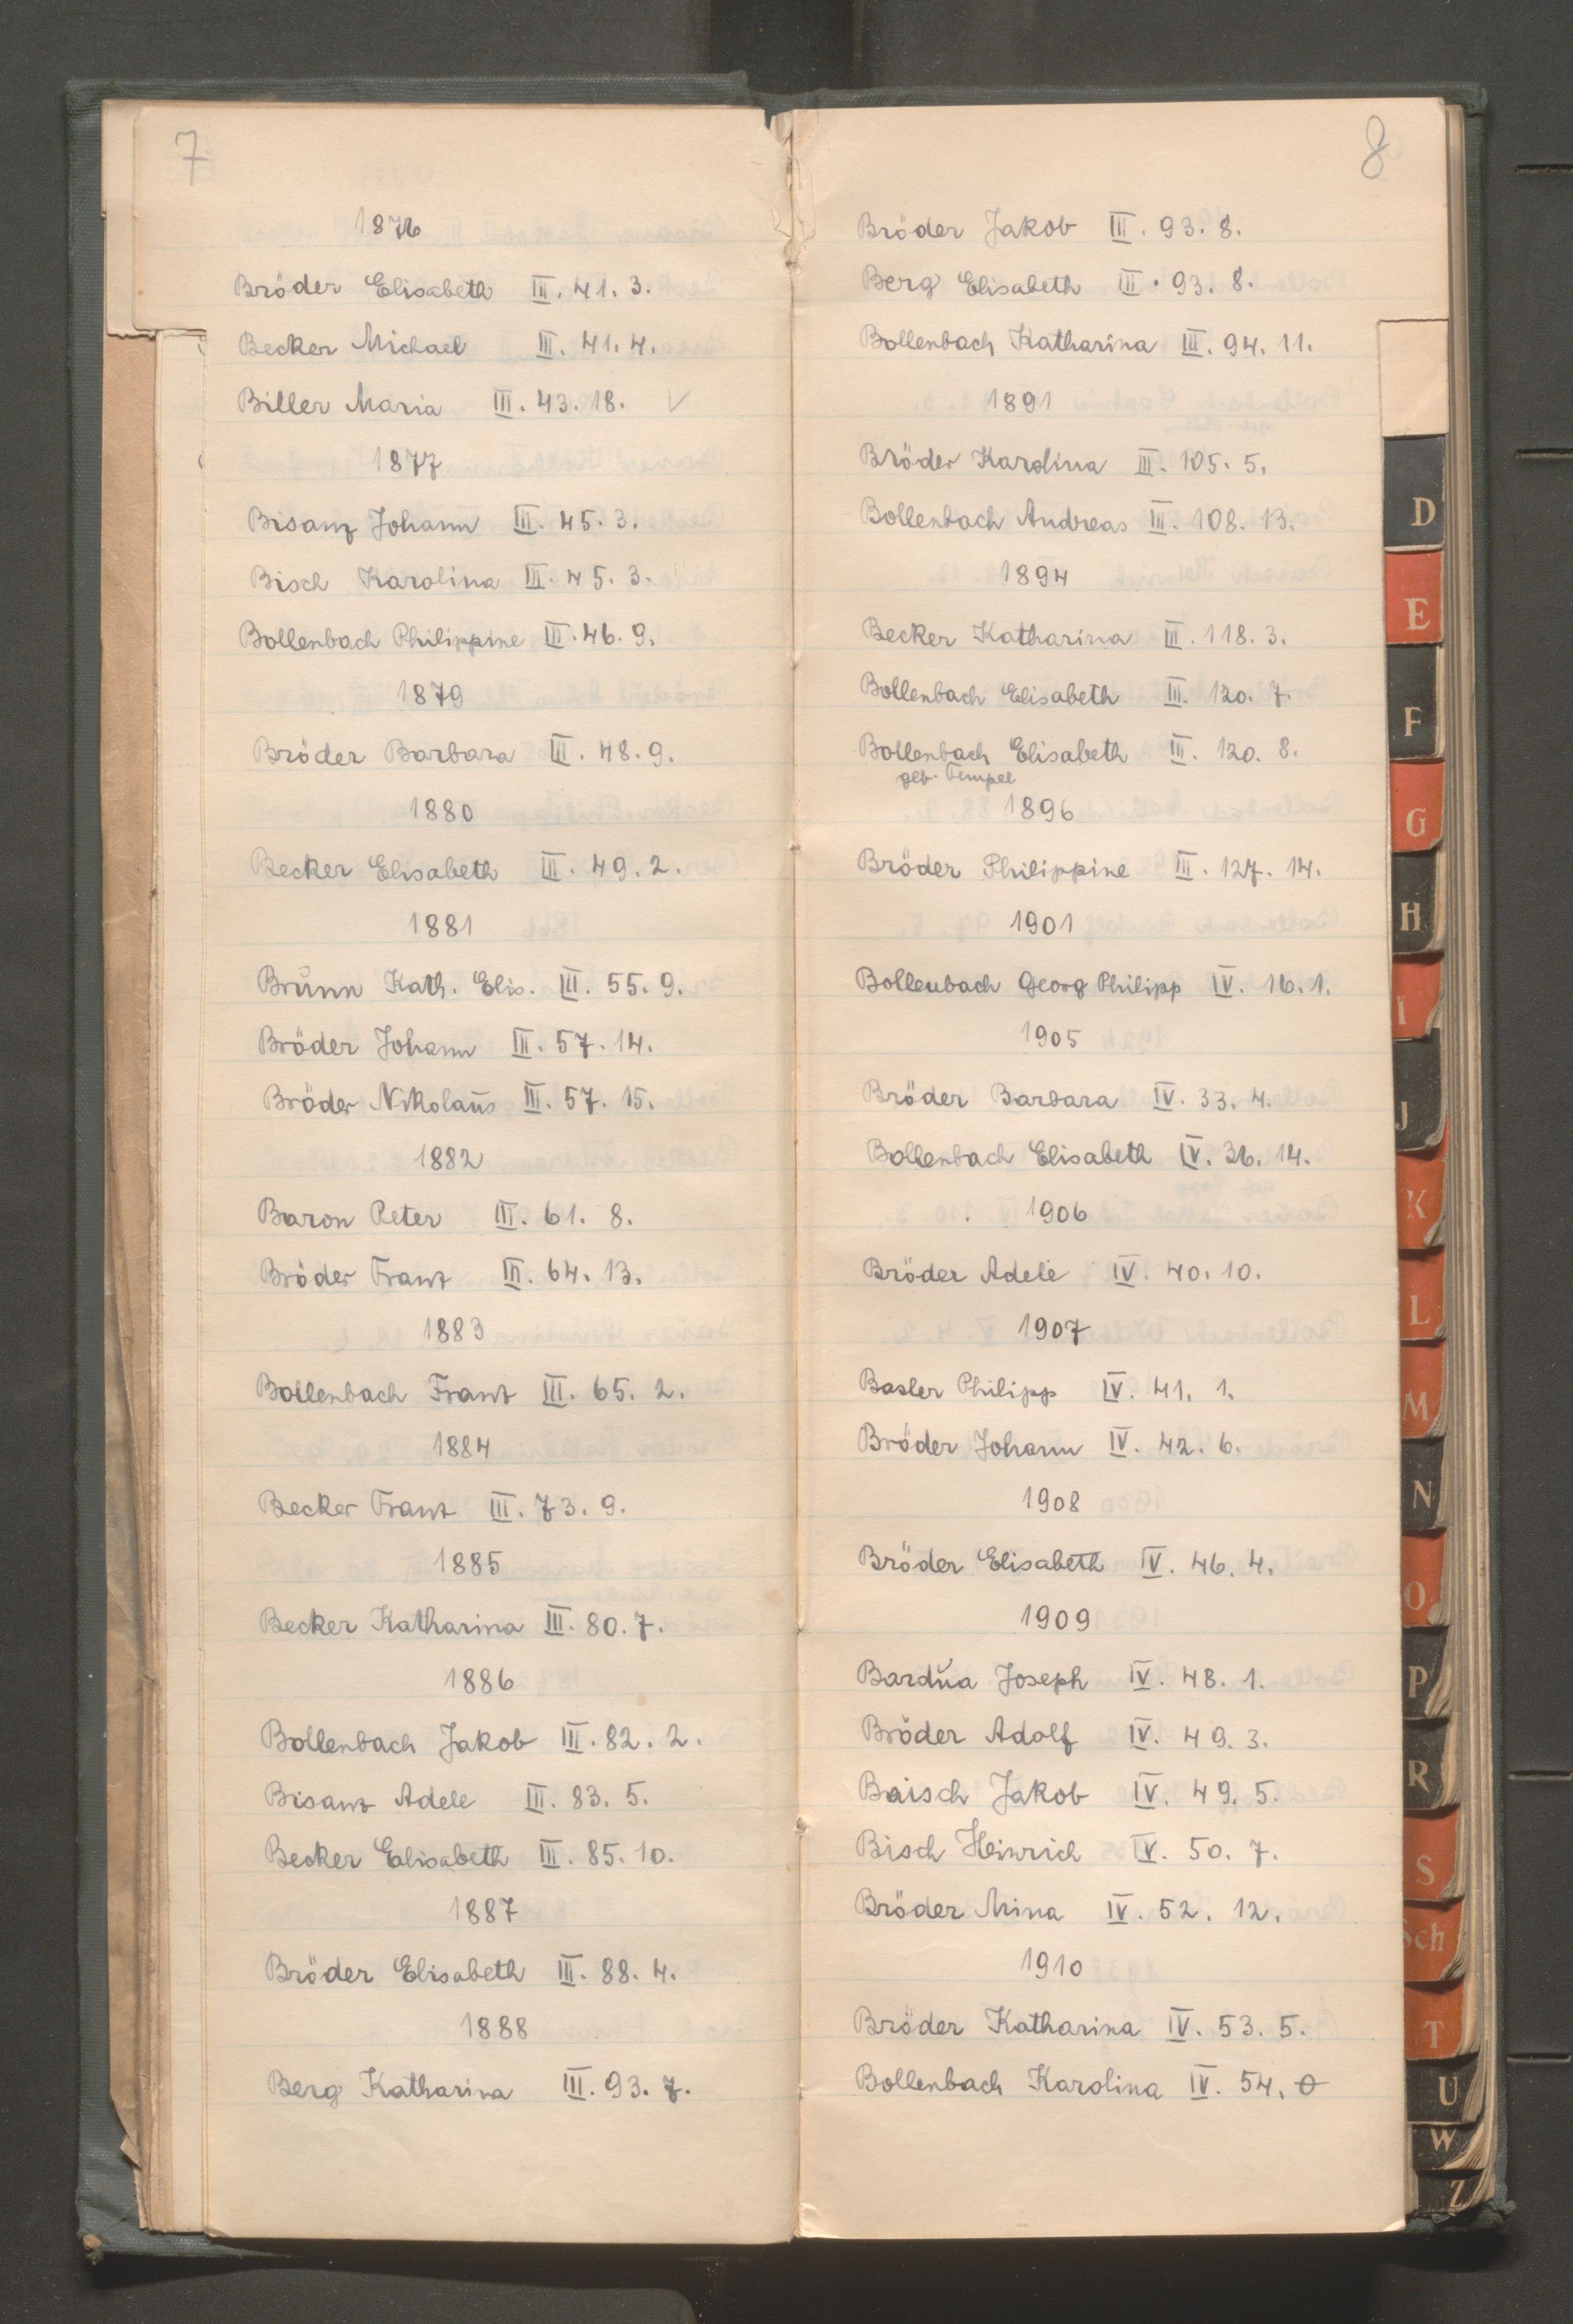 7
1876
Bröder Elisabeth III. 41. 3.
Becker Michael III. 41. 4.
Biller Maria III. 43. 18. ✓
1877
Bisanz Johann III. 45. 3.
Bisch Karolina III. 45. 3.
Bollenbach Philippine III. 46. 9.
1879
Bröder Barbara III. 48. 9.
1880
Becker Elisabeth III. 49. 2.
1881
Brunn Kath. Elis. III. 55. 9.
Bröder Johann III. 57. 14.
Bröder Nikolaus III. 57. 15.
1882
Baron Peter III. 61. 8.
Bröder Franz III. 64. 13.
1883
Bollenbach Franz III. 65. 2.
1884
Becker Franz III. 73. 9.
1885
Becker Katharina III. 80. 7.
1886
Bollenbach Jakob III. 82. 2.
Bisanz Adele III. 83. 5.
Becker Elisabeth III. 85. 10.
1887
Bröder Elisabeth III. 88. 4.
1888
Berg Katharina III. 93. 7.
8
Bröder Jakob III. 93. 8.
Berg Elisabeth III. 93. 8.
Bollenbach Katharina III. 94. 11.
1891
Bröder Karolina III. 105. 5.
Bollenbach Andreas III. 108. 13.
1894
Becker Katharina III. 118. 3.
Bollenbach Elisabeth III. 120. 7.
Bollenbach Elisabeth III. 120. 8.
geb. Tempel
1896
Bröder Philippine III. 127. 14.
1901
Bollenbach Georg Philipp IV. 16. 1.
1905
Bröder Barbara IV. 33. 4.
Bollenbach Elisabeth IV. 36. 14.
1906
Bröder Adele IV. 40. 10.
1907
Basler Philipp IV. 41. 1.
Bröder Johann IV. 42. 6.
1908
Bröder Elisabeth IV. 46. 4.
1909
Bardua Joseph IV. 48. 1.
Bröder Adolf IV. 49. 3.
Baisch Jakob IV. 49. 5.
Bisch Heinrich IV. 50. 7.
Bröder Mina IV. 52. 12.
1910
Bröder Katharina IV. 53. 5.
Bollenbach Karolina IV. 54. 0
D
E
F
G
H
I
J
K
L
M
N
O
P
R
S
Sch
T
U
W
Z